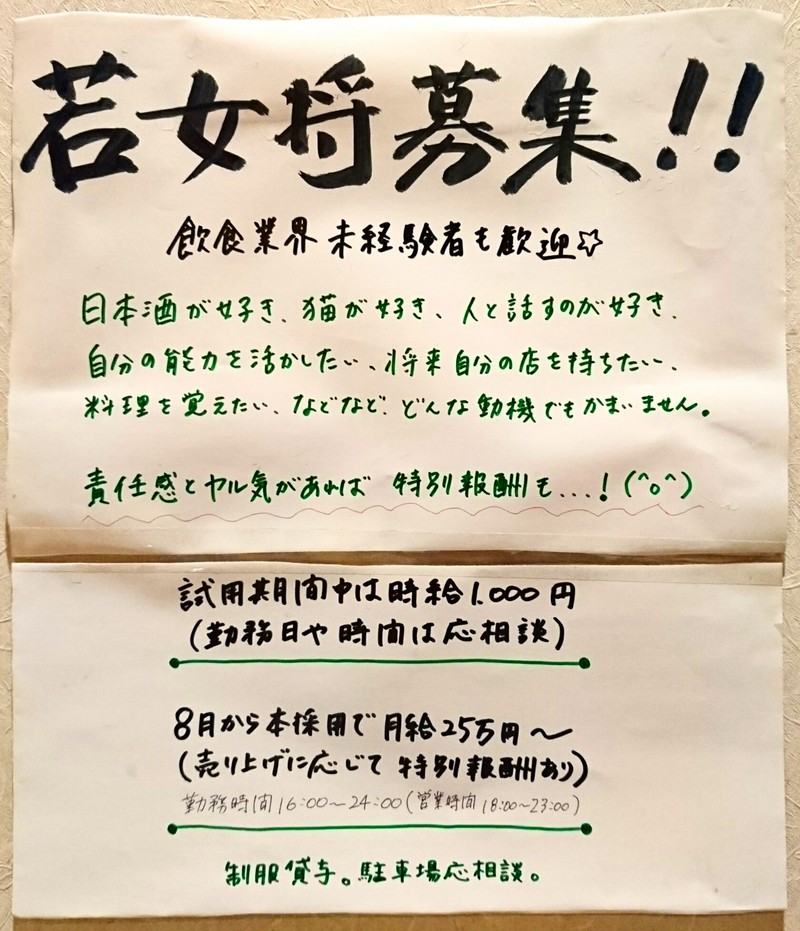 若女将募集!!
飲食業界 未経験者も歓迎☆
日本酒が好き、猫が好き、人と話すのが好き、
自分の能力を活かしたい、将来自分の店を持ちたい、
料理を覚えたい、などなど、どんな動機でもかまいません。
責任感とヤル気があれば 特別報酬も...!(^o^)
試用期間中は時給1.000円
(勤務日や時間は応相談)
8月から本採用で月給25万円〜
(売り上げに応じて特別報酬あり)
勤務時間16:00〜24:00(営業時間18:00〜23:00)
制服貸与。駐車場応相談。